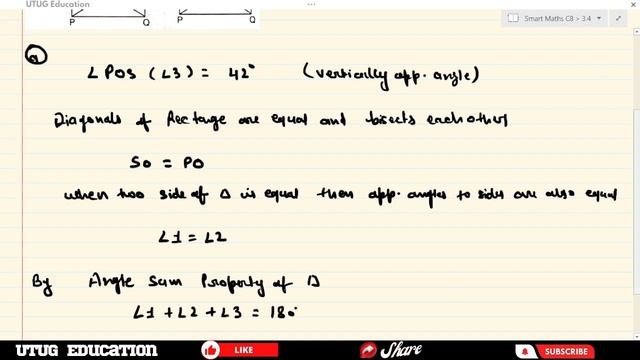 UTUG Education
P Q P Q
Smart Maths C8 > 3.4
a
∠POS (∠3) = 42° (vertically opp. angle)
Diagonals of Rectange are equal and bisects each other
SO = PO
when two side of Δ is equal then opp. angles to sides are also equal
∠1 = ∠2
By Angle Sum Property of Δ
∠1 + ∠2 + ∠3 = 180°
UTUG EDUCATION LIKE Share SUBSCRIBE UTUG EDUCATION